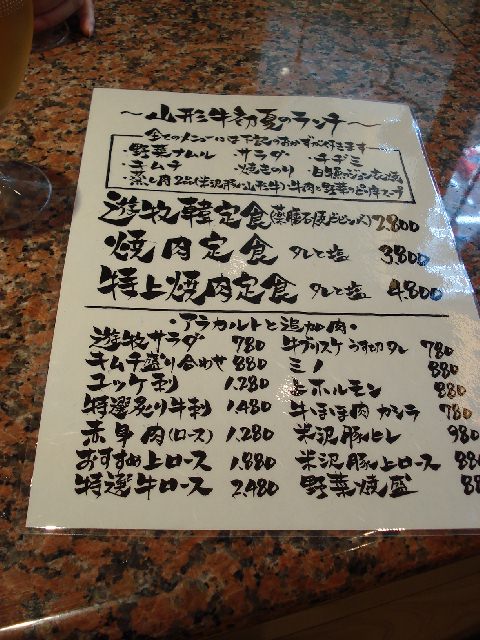 〜山形牛初夏のランチ〜
全てのメニューには下記のおかずが付きます
・野菜ナムル ・サラダ ・チヂミ
・キムチ ・焼きのり
・蒸し肉2品(米沢豚と山形牛)・牛肉と野菜の スープ
遊牧韓定食(薬膳石焼ビビンバ)2.800
焼肉定食 タレと塩 3.800
特上焼肉定食 タレと塩 4.800
・アラカルトと追加肉・
遊牧サラダ 780
キムチ盛り合わせ 880
ユッケ刺 1.280
特選炙り牛刺 1.480
赤身肉(ロース) 1.280
おすすめ上ロース 1.880
特選牛ロース 2.480
牛ブリスケうす切タレ 780
ミノ 880
ホルモン 880
牛ほほ肉カシラ 780
米沢豚ヒレ 980
米沢豚上ロース
野菜焼盛